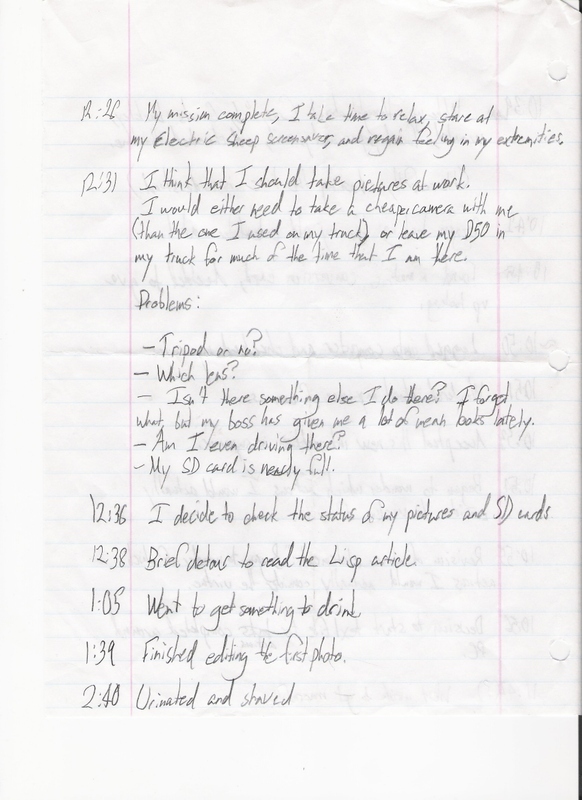 12:26 My mission complete, I take time to relax, stare at
my Electric Sheep screensaver, and regain feeling in my extremities.
12:31 I think that I should take pictures at work.
I would either need to take a cheaper camera with me
(than the one I used on my truck) or leave my D50 in
my truck for much of the time that I am there.
Problems:
- Tripod or no?
- Which lens?
- Isn't there something else I do there? I forget
what, but my boss has given me a lot of mean looks lately.
- Am I even driving there?
- My SD card is nearly full.
12:36 I decide to check the status of my pictures and SD cards
12:38 Brief detour to read the Lisp article.
1:05 Went to get something to drink
1:39 Finished editing the first photo.
2:40 Urinated and shaved